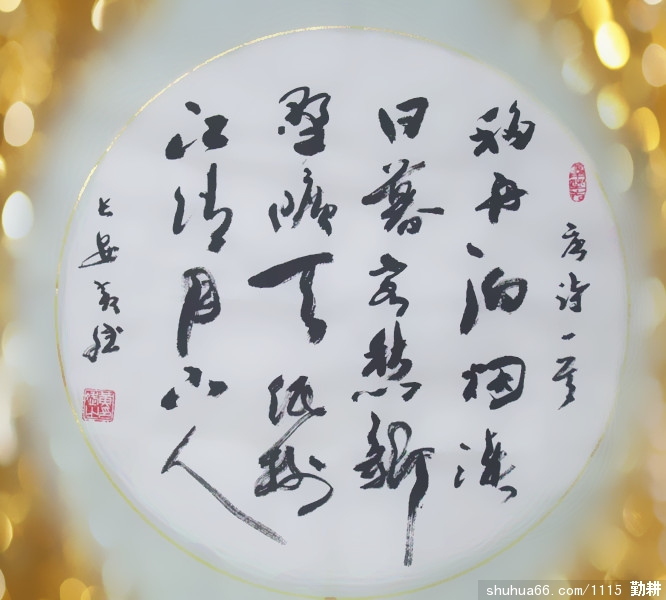 唐诗一首
移舟泊烟渚
日暮客愁新
野曠天低树
江清月近人
长安
shuhua66.com/1115 勤耕